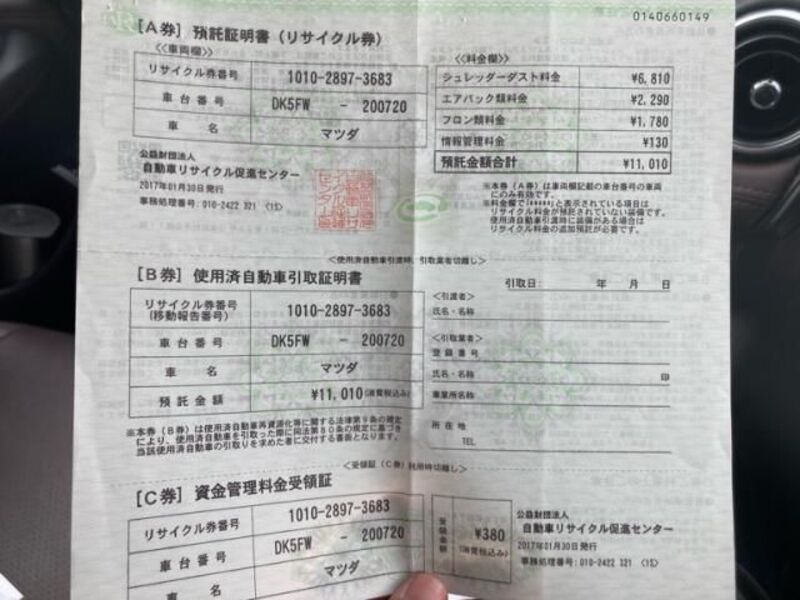 0140660149
[A券] 預託証明書(リサイクル券)
<<車両欄>>
リサイクル券番号 1010-2897-3683
車台番号 DK5FW - 200720
車名 マツダ
<<料金欄>>
シュレッダーダスト料金 ¥6,810
エアバッグ類料金 ¥2,290
フロン類料金 ¥1,780
情報管理料金 ¥130
預託金額合計 ¥11,010
公益財団法人
自動車リサイクル促進センター
2017年01月30日発行
事務処理番号:010-2422 321 <1S>
※本券(A券)は車両欄記載の車台番号の車両
にのみ有効です。
※料金欄で「*****」と表示されている項目は
リサイクル料金が預託されていない装備です。
使用済自動車引渡時に装備がある場合は
リサイクル料金の追加預託が必要です。
<使用済自動車引渡時、引取業者切離し>
[B券] 使用済自動車引取証明書
リサイクル券番号
(移動報告番号) 1010-2897-3683
車台番号 DK5FW - 200720
車名 マツダ
預託金額 ¥11,010(消費税込み)
引取日: 年 月 日
<引渡者>
氏名・名称
<引取業者>
登録番号
氏名・名称 印
事業所名称
所在地
TEL
※本券(B券)は使用済自動車再資源化等に関する法律第9条の規定
により、使用済自動車を引取った際に同法第80条の規定に基づき
当該使用済自動車の引取りを求めた者に交付する書面となります。
<受領証(C券)利用時切離し>
[C券] 資金管理料金受領証
リサイクル券番号 1010-2897-3683
車台番号 DK5FW - 200720
車名 マツダ
受領金額 ¥380
(消費税込み)
公益財団法人
自動車リサイクル促進センター
2017年01月30日発行
事務処理番号:010-2422 321 <1S>